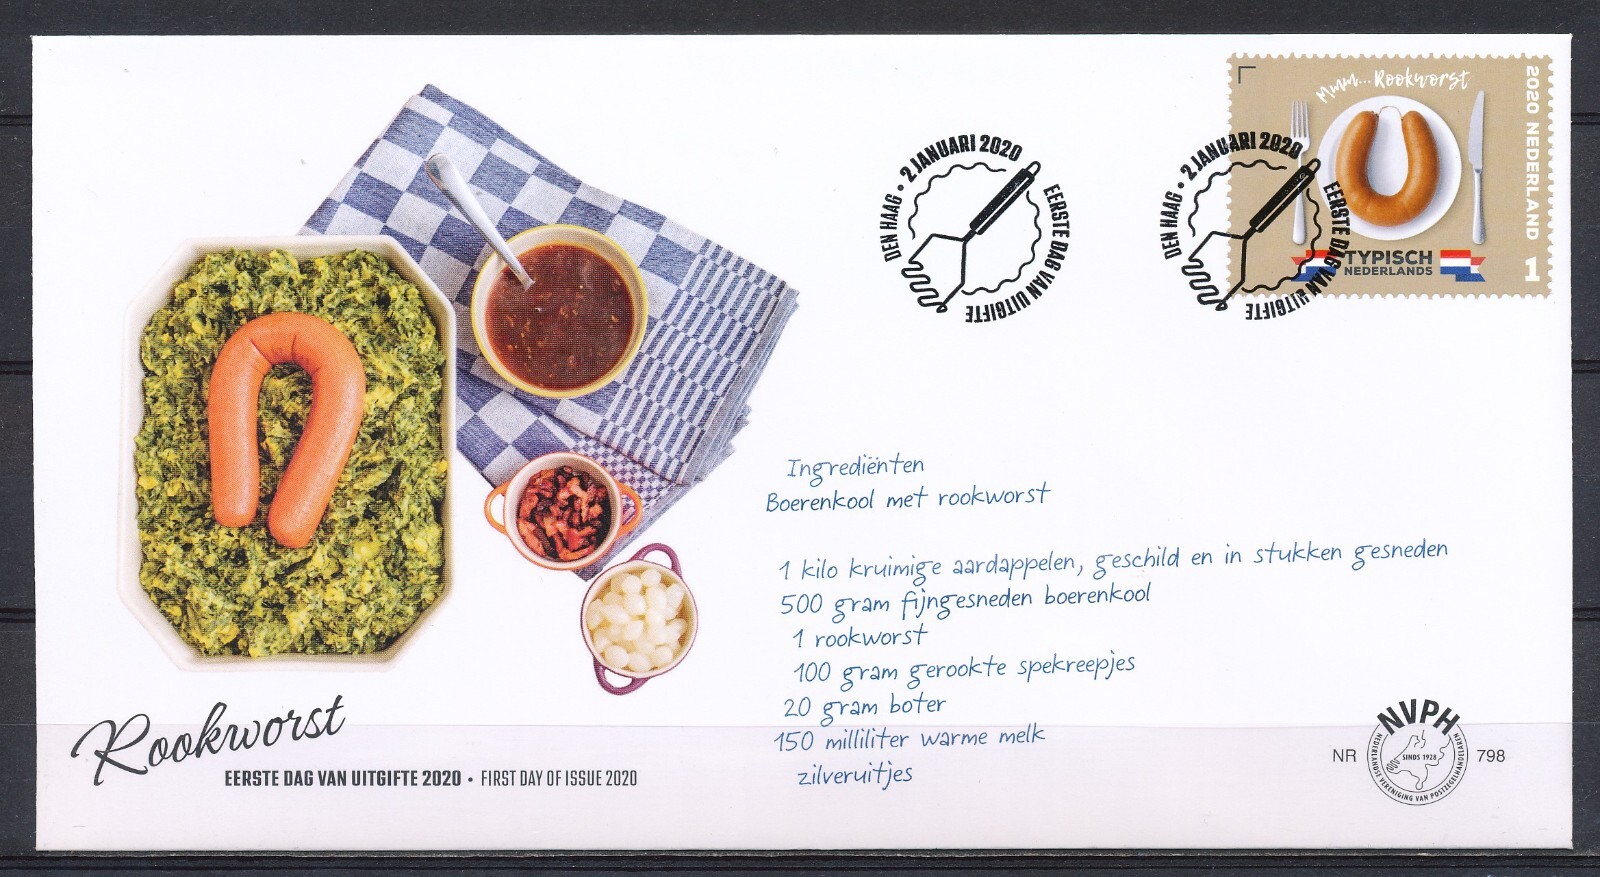 Mmm... Rookworst
2020 NEDERLAND
1
TYPISCH
NEDERLANDS
DEN HAAG • 2 JANUARI 2020
EERSTE DAG VAN UITGIFTE
DEN HAAG • 2 JANUARI 2020
EERSTE DAG VAN UITGIFTE
Ingrediënten
Boerenkool met rookworst
1 kilo kruimige aardappelen, geschild en in stukken gesneden
500 gram fijngesneden boerenkool
1 rookworst
100 gram gerookte spekreepjes
20 gram boter
150 milliliter warme melk
zilveruitjes
Rookworst
EERSTE DAG VAN UITGIFTE 2020 • FIRST DAY OF ISSUE 2020
NR 798
NVPH
SINDS 1928
NEDERLANDSE VERENIGING VAN POSTZEGELHANDELAREN